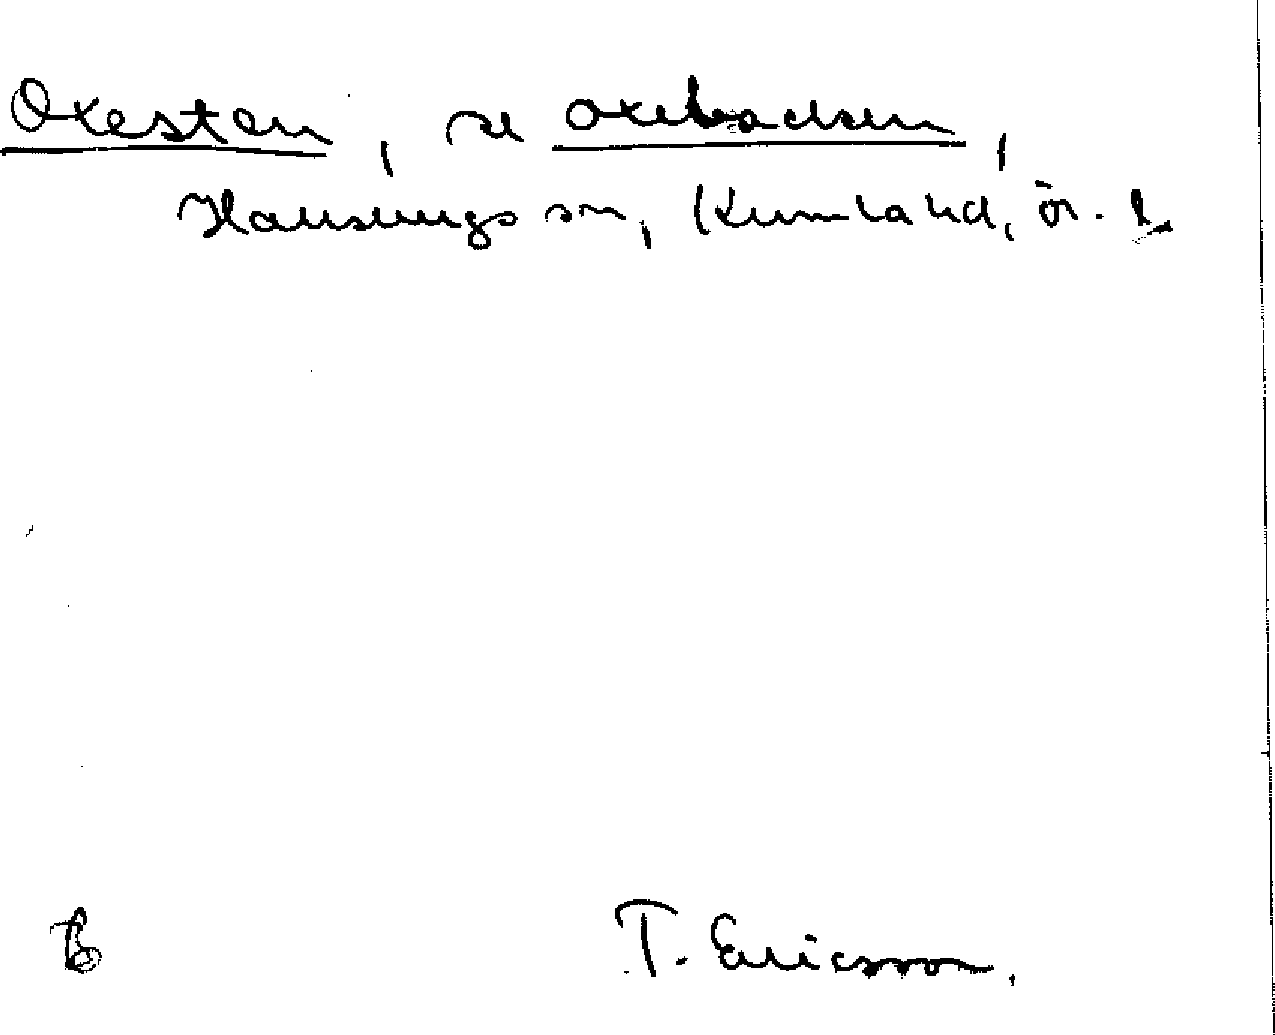 Oxesten, se Oxebacken,
Hallsbergs sn, Kumla hd, ör. l.
T. Ericsson.